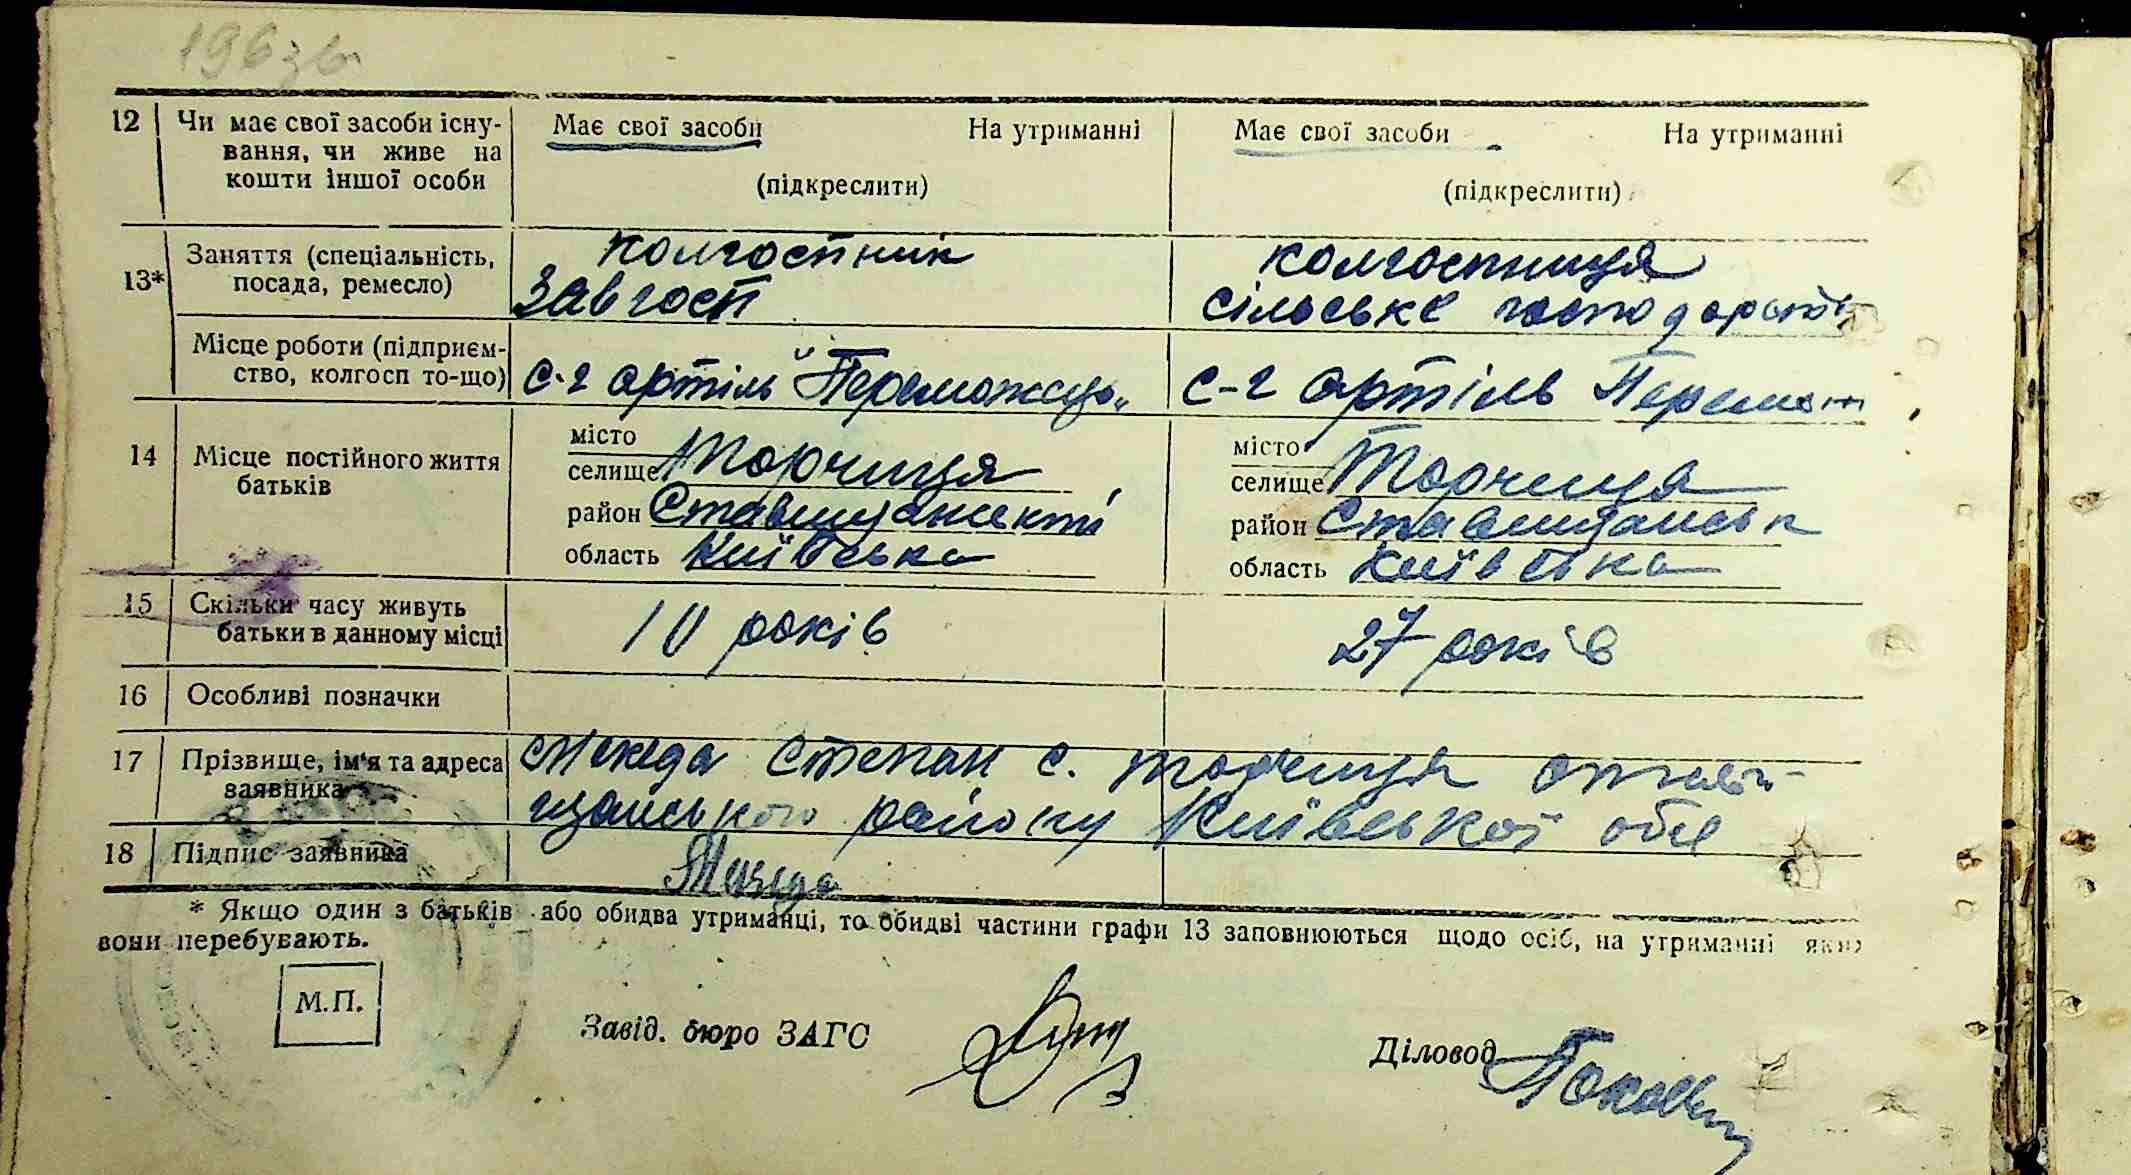 196 зв
12 Чи має свої засоби існу- Має свої засоби На утриманні Має свої засоби На утриманні
вання, чи живе на
кошти іншої особи (підкреслити) (підкреслити)
13* Заняття (спеціальність, колгоспник колгоспниця
посада, ремесло) Завгосп сільське господарств
Місце роботи (підприєм-
ство, колгосп то-що) с-г артіль "Переможець" с-г артіль Перемож
14 Місце постійного життя батьків
місто місто
селище Торчиця селище Торчиця
район Ставищанский район Ставищанськ
область Київська область Київська
15 Скільки часу живуть 10 років 27 років
батьки в данному місці
16 Особливі позначки
17 Прізвище, ім'я та адреса Степан с. Торчиця Стави-
заявника щанського району Київської обл
18 Підпис заявника
* Якщо один з батьків або обидва утриманці, то обидві частини графи 13 заповнюються щодо осіб, на утриманні яких
вони перебувають.
М.П.
Завід. бюро ЗАГС
Діловод